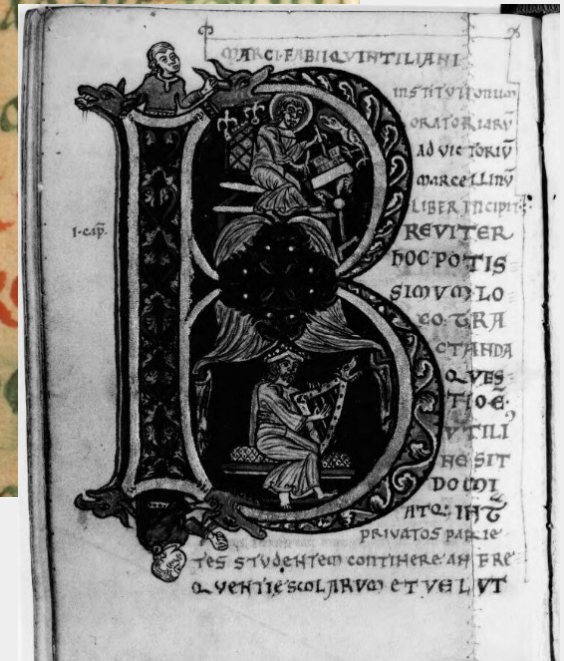 MARCI·FABII·QVINTILIANI
INSTITVTIONUM
ORATORIARV̄
AD VICTORIV̄
MARCELLINV̄
LIBER INCIPIT
I·cap̄.
B
REVITER
hOC POTIS
SIMVM LO
CO: TRA
CTANDA
QVES
TIO Ē·
VTILI
NE SIT
DOMI
ATQ: INT̄
PRIVATOS PARIE
TES STVDENTEM CONTINERE AN FRE
QVENTIE SCOLARVM ET VELVT